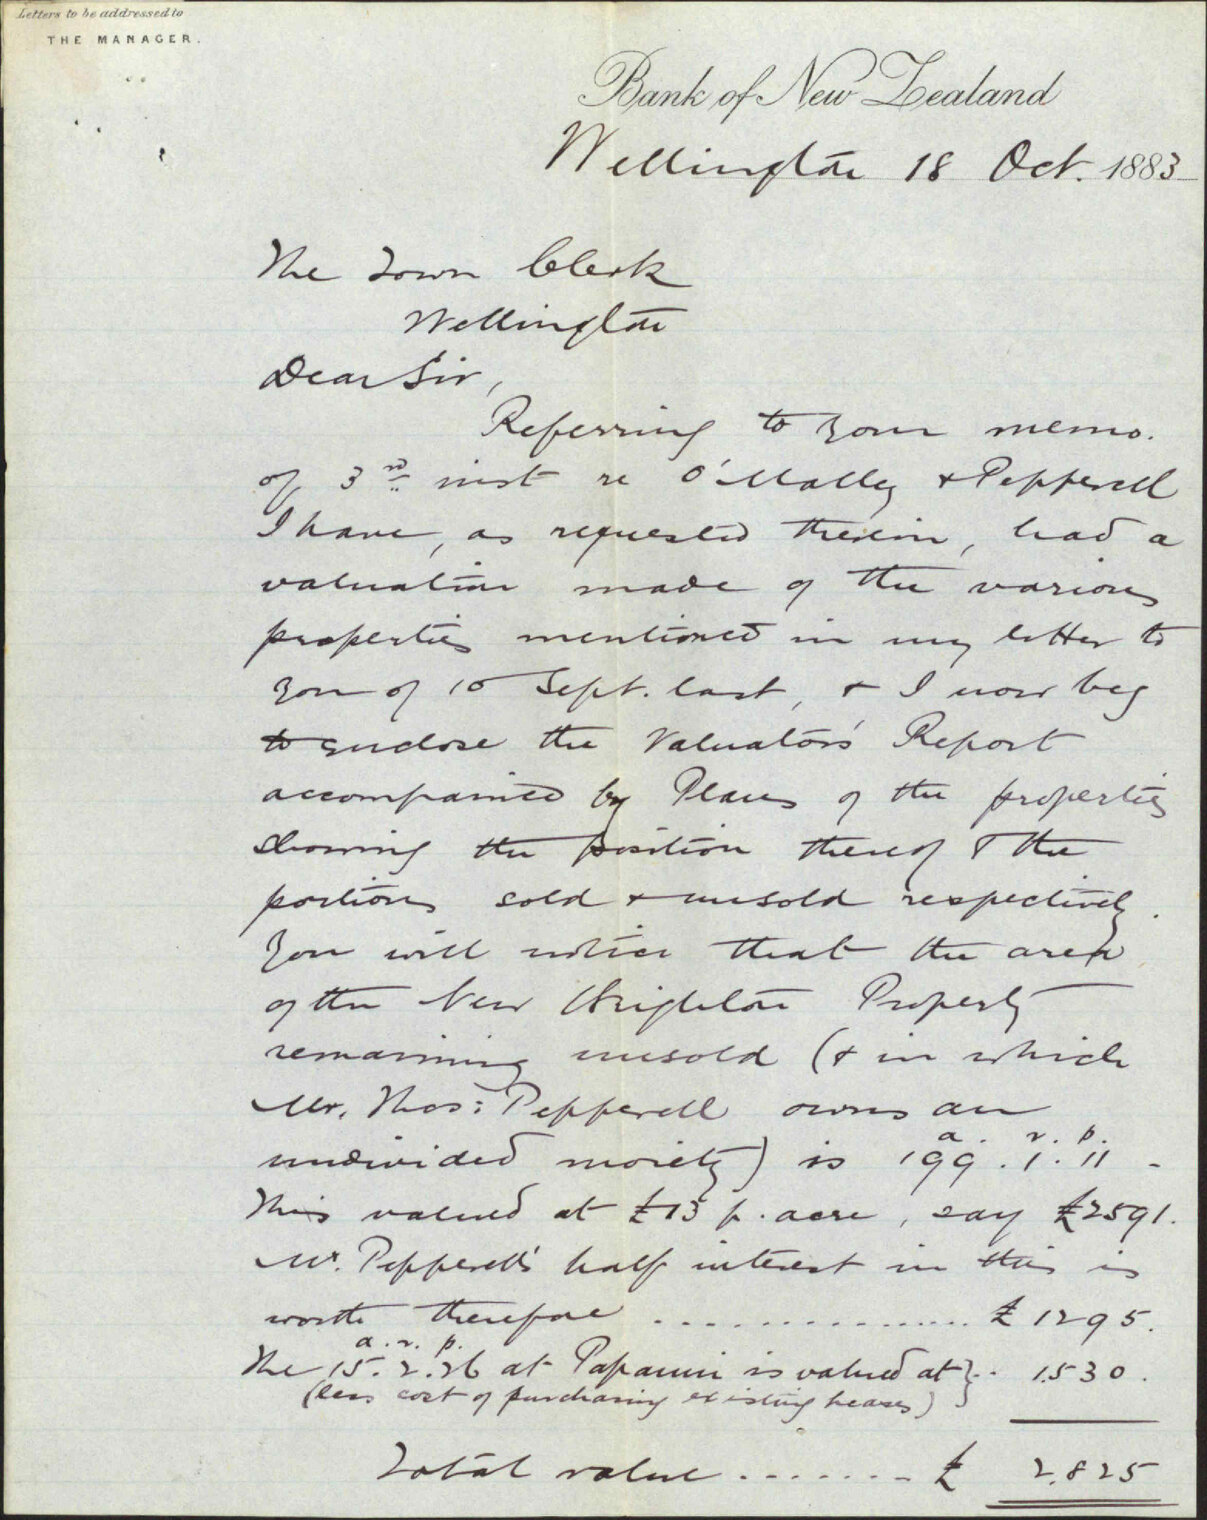 Letters to be addressed to
THE MANAGER.
Bank of New Zealand
Wellington 18 Oct. 1883
The Town Clerk
Wellington
Dear Sir,
Referring to your memo.
of 3rd inst re O'Malley & Pepperell
I have, as requested therein, had a
valuation made of the various
properties mentioned in my letter to
you of 10 Sept. last, & I now beg
to enclose the Valuators' Report
accompanied by Plans of the properties
showing the position thereof & the
portions sold & unsold respectively.
You will notice that the area
of the New Brighton Property
remaining unsold (& in which
Mr. Thos: Pepperell owns an
undivided moiety) is 199a. 1r. 11p. -
This valued at £13 p. acre, say £2591.
Mr. Pepperell's half interest in this is
worth therefore ............... £1295.
The 15a. 2r. 26p. at Papanui is valued at } .. 1530.
(less cost of purchasing existing leases)
Total value ....... £ 2,825